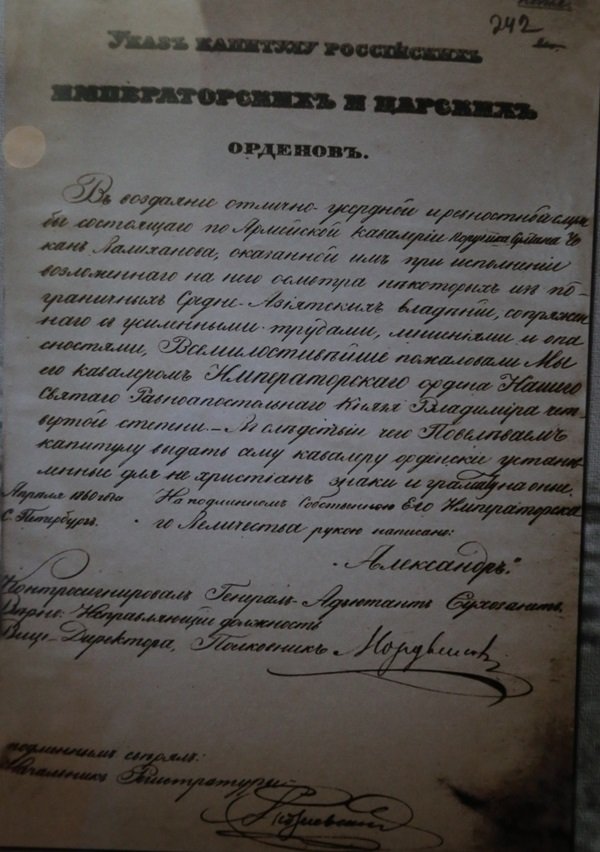 Копія.
242
Указъ капитулу россійскихъ
императорскихъ и царскихъ
орденовъ.
Въ воздаяніе отлично-усердной и ревностной служ
бы состоящаго по Армейской кавалеріи поручика Султана Чо
канъ Валиханова, оказанной имъ при исполненіи
возложеннаго на него осмотра нѣкоторыхъ изъ по-
граничныхъ Средне-Азіятскихъ владѣній, сопряжен
наго съ усиленными трудами, лишеніями и опа
сностями, Всемилостивѣйше пожаловали Мы
его кавалеромъ Императорскаго ордена Нашего
Святаго Равноапостольнаго Князя Владиміра чет
вертой степени.- Въ слѣдствіи чего Повелѣваемъ
капитулу выдать ему кавалеру орденскіе установ
ленные для не христіанъ знаки и грамату на оные.
Апрѣля 1860 года На подлинномъ Собственною Его Императорска
С. Петербургъ. го Величества рукою написано:
"Александръ."
Контросигнировалъ Генералъ-Адъютантъ Сухозанетъ.
Вѣрно: Исправляющій должность
Вице-Директора, Полковникъ Мордвиновъ
подлиннымъ свѣрялъ:
Начальникъ Регистратуры